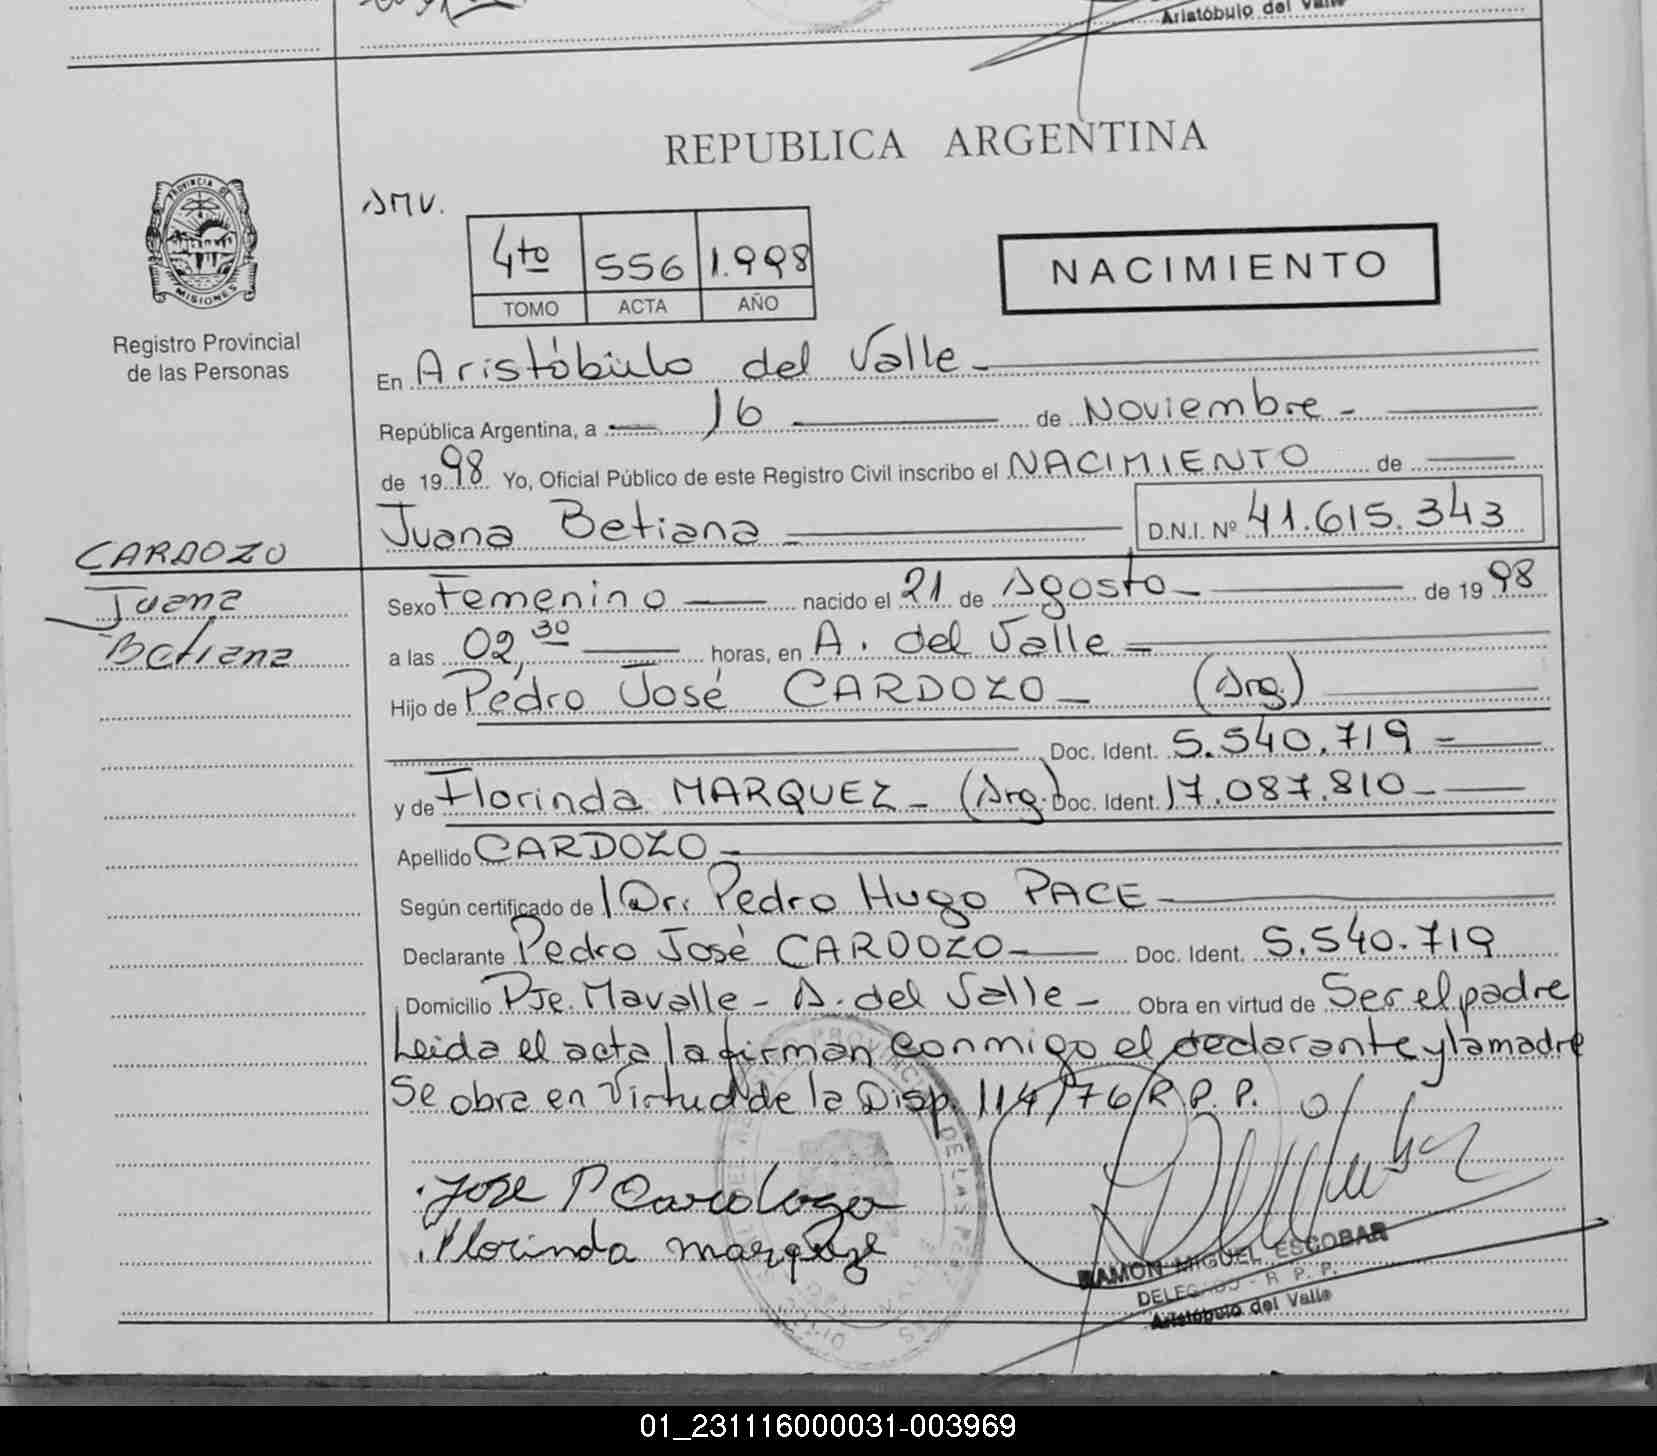 Aristóbulo del Valle
REPUBLICA ARGENTINA
PROVINCIA DE
MISIONES
Registro Provincial
de las Personas
AMV.
4to 556 1.998
TOMO ACTA AÑO
NACIMIENTO
En Aristóbulo del Valle
República Argentina, a 16 de Noviembre
de 1998 Yo, Oficial Público de este Registro Civil inscribo el NACIMIENTO de
Juana Betiana D.N.I. Nº 41.615.343
CARDOZO
Juana
Betiana
Sexo Femenino nacido el 21 de Agosto de 1998
a las 02,30 horas, en A. del Valle
Hijo de Pedro José CARDOZO (Arg.)
Doc. Ident. 5.540.719
y de Florinda MARQUEZ (Arg.) Doc. Ident. 17.087.810
Apellido CARDOZO
Según certificado de Dr. Pedro Hugo PACE
Declarante Pedro José CARDOZO Doc. Ident. 5.540.719
Domicilio Pje. Mavalle - A. del Valle - Obra en virtud de Ser el padre
Leida el acta la firman conmigo el declarante y la madre
Se obra en Virtud de la Disp. 114/76 R.P.P.
Jose P Cardozo
Florinda marquez
RAMON MIGUEL ESCOBAR
DELEGADO - R. P. P.
Aristóbulo del Valle
01_231116000031-003969